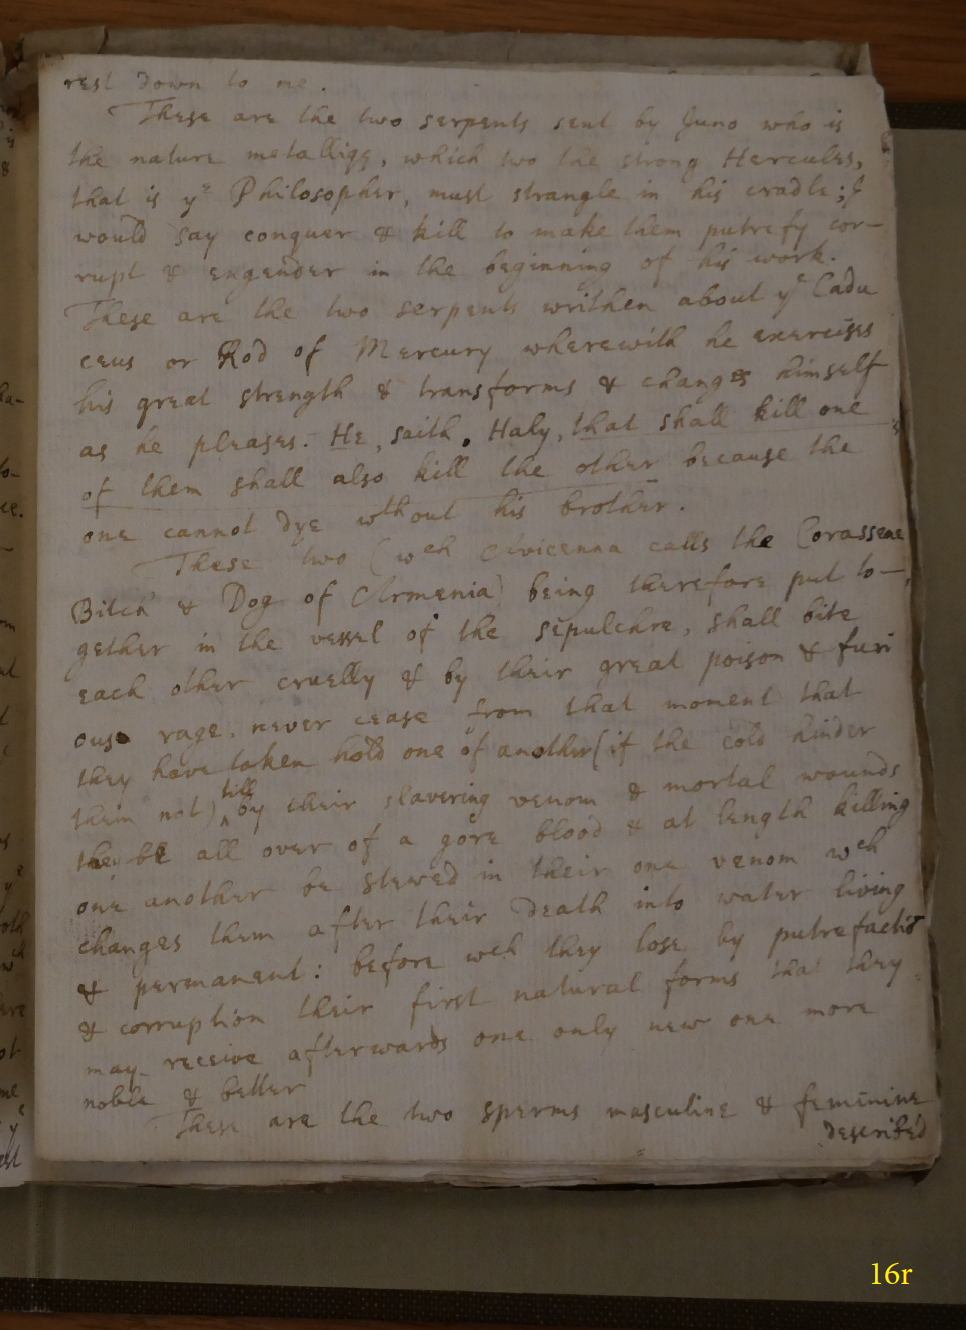 rest down to me.
These are the two serpents sent by Juno who is
the nature metallique, which two the strong Hercules,
that is yᵉ Philosopher, must strangle in his cradle; I
would say conquer & kill to make them putrefy cor-
rupt & engender in the beginning of his work.
These are the two serpents writhen about yᵉ Cadu
ceus or Rod of Mercury wherewith he exercises
his great strength & transforms & changes himself
as he pleases. He, saith, Haly, that shall kill one
of them shall also kill the other because the
one cannot dye wᵗʰout his brother.
These two (wᶜʰ Avicenna calls the Corassene
Bitch & Dog of Armenia) being therefore put to-
gether in the vessel of the sepulchre, shall bite
each other cruelly & by their great poison & furi
ous rage, never cease from that moment that
they have taken hold one of another (if the cold hinder
them not) till by their slavering venom & mortal wounds
they be all over of a gore blood & at length killing
one another be stewed in their one venom wᶜʰ
changes them after their death into water living
& permanent: before wᶜʰ they lose by putrefactiō
& corruption their first natural forms that they
may receive afterwards one only new one more
noble & better
These are the two sperms masculine & feminine
described
16r